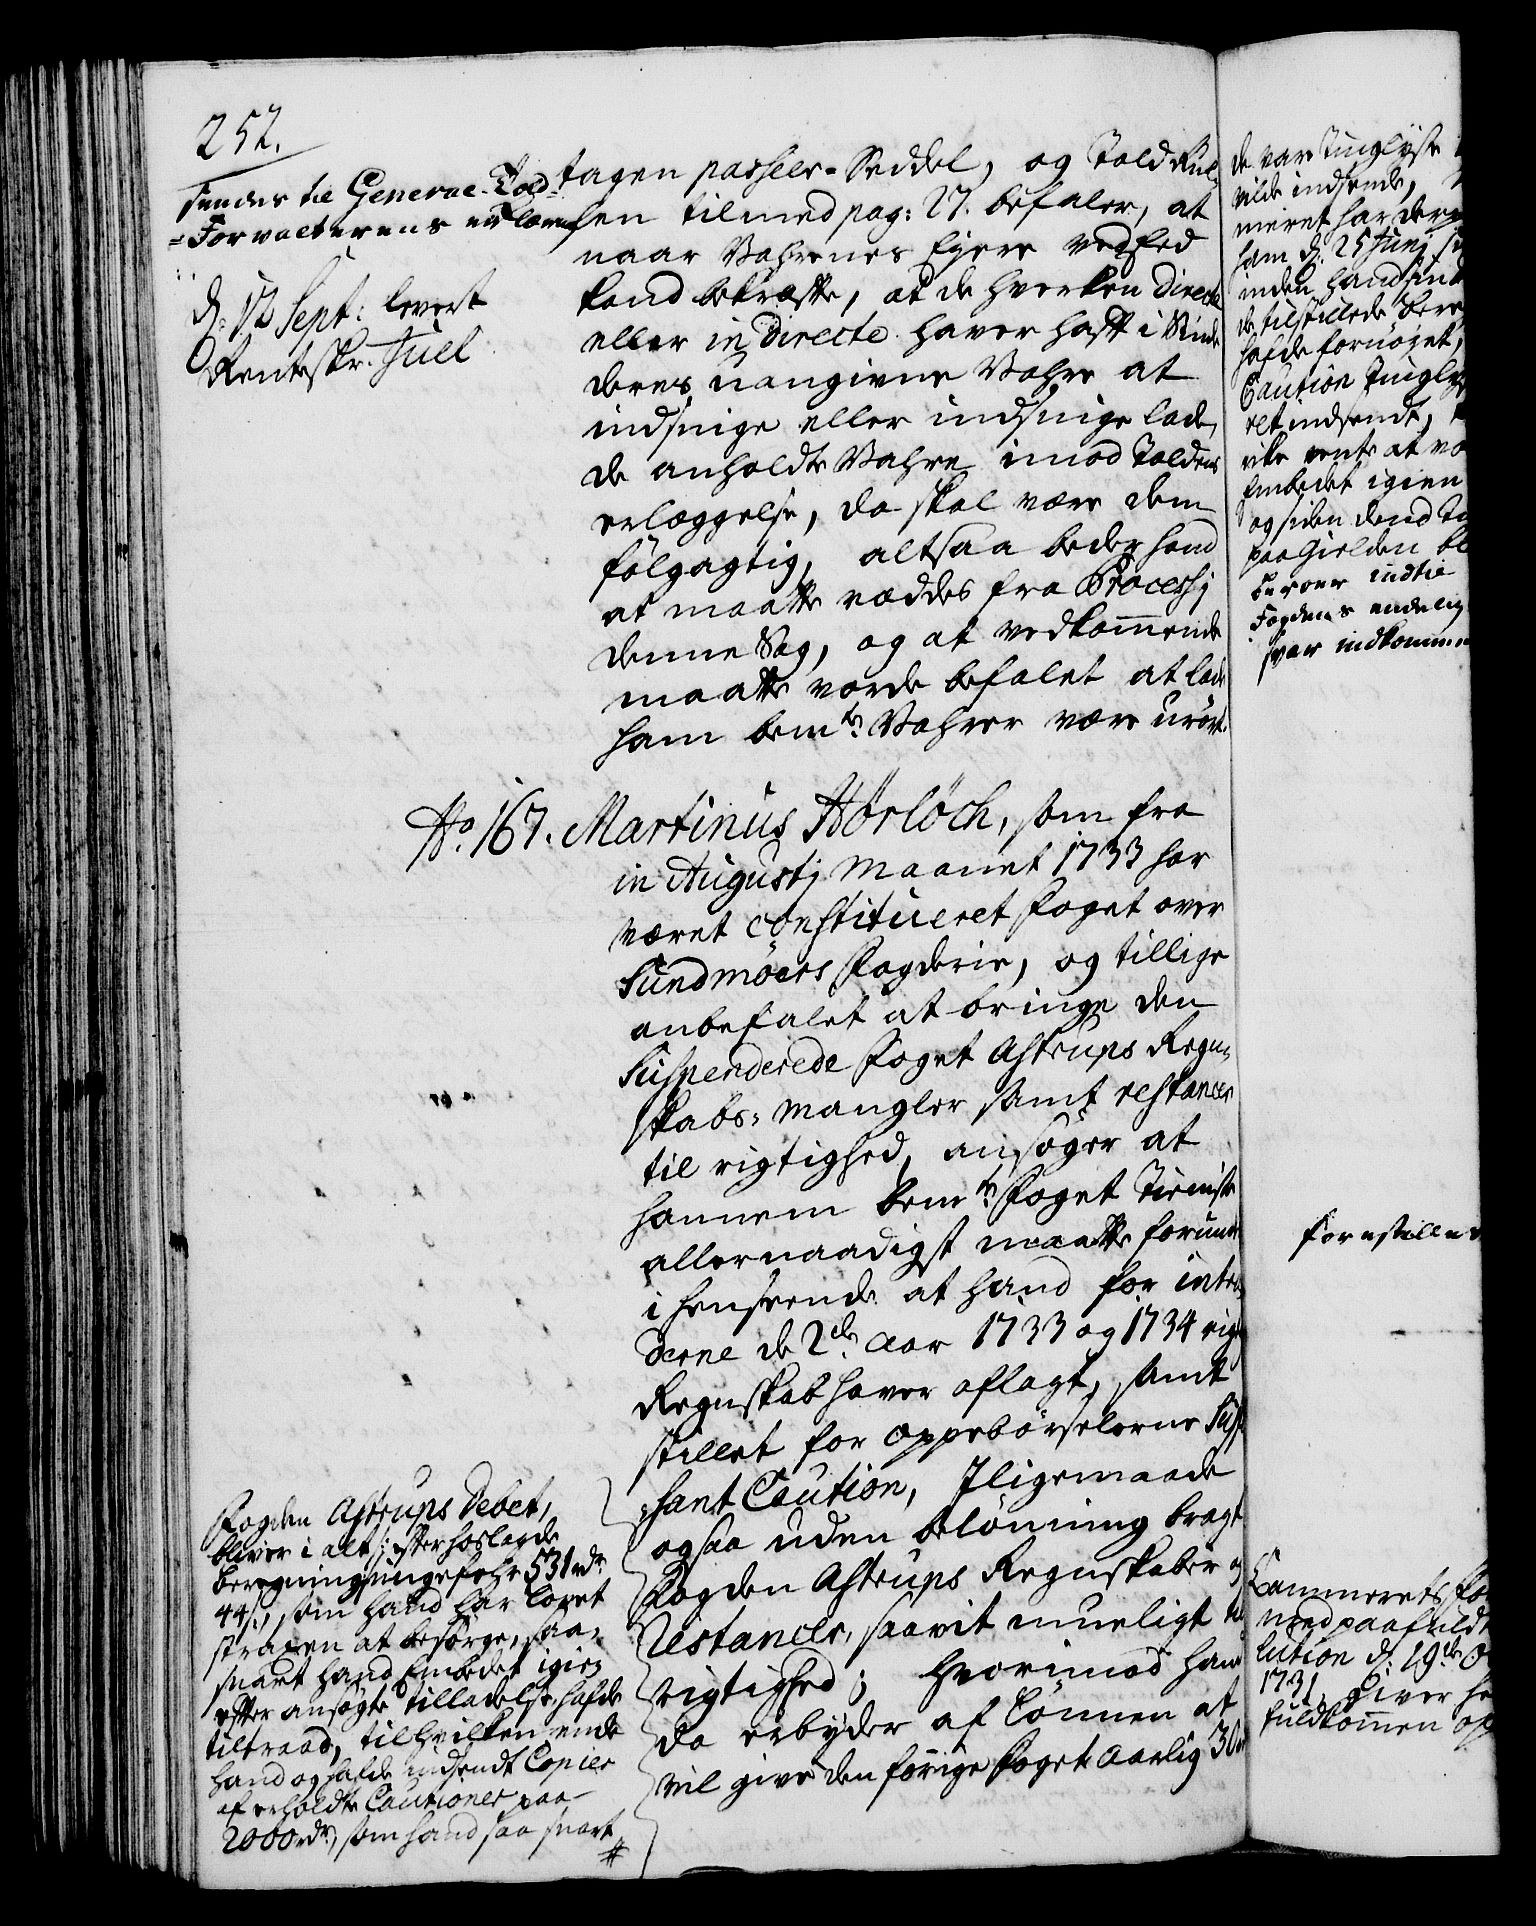 252.
sendes til General-Told-
Forvalterens erklæring
d: 12 Sept: levert
Renteskr. Juel
tagen passeer-Seddel, og Told Rul-
len tilmed pag: 27. befaler, at
naar Vahrenes Ejere ved Eed
kand bekræffte, at de hverken directe
eller indirecte haver hafft i Sinde
deres uangivne Vahre at
indsnige eller indsnige lade,
de anholdte Vahre imod Toldens
erlæggelse, da skal være dem
følgagtig, altsaa beder hand
at maatte reddes fra Process i
denne Sag, og at vedkommende
maatte vorde befalet at lade
ham bemte Vahrer være urørt.
No. 167. Martinus Hørlöch, som fra
in Augustj Maanet 1733 har
været constitueret Foget over
Sundmöers Fogderie, og tillige
anbefalet at bringe den
Suspenderede Foget Astrups Regn-
skabs-Mangler samt restancer
til rigtighed, ansøger at
hannem bemte Foget Tieniste
allernaadigst maatte forundes
i henseende at hand for intra-
derne de 2de Aar 1733 og 1734 rigtig
Regnskab haver aflagt, samt
stillet for oppebørselerne Suf-
fisant Caution, Iligemaade
ogsaa uden belønning bragt
Fogden Astrups Regnskaber og
Restancer, saavit mueligt til
rigtighed; hvorimod hand
da erbyder af Lønnen at
vil give den forige Foget Aarlig 30
Fogden Astrups Debet,
bliver i alt efter hoslagde
beregning ungefehr 531 rdr
44 s, som hand har lovet
straxen at besørge, saa-
snart hand Embedet igien
effter ansøgte tilladelse hafde
tiltraad, til hvilken ende
hand og hafde indsendt Copier
af erholdte Cautioner paa
2000 rdr, som hand saa snart
#
de var Tinglyste
vilde indsende,
meret har der
ham d: 25 Junj
inden hand sin
de tilstillede
hafde fornøjet,
Caution Tingly
ret indsendt,
icke vente at
Embedet igien
og siden dend
paa Gielden
beroer indtil
Fogdens endelig
svar indkommer
forestilles
Cammerets
med paafuldt
lution d: 19de
1731, giver
fuldkommen